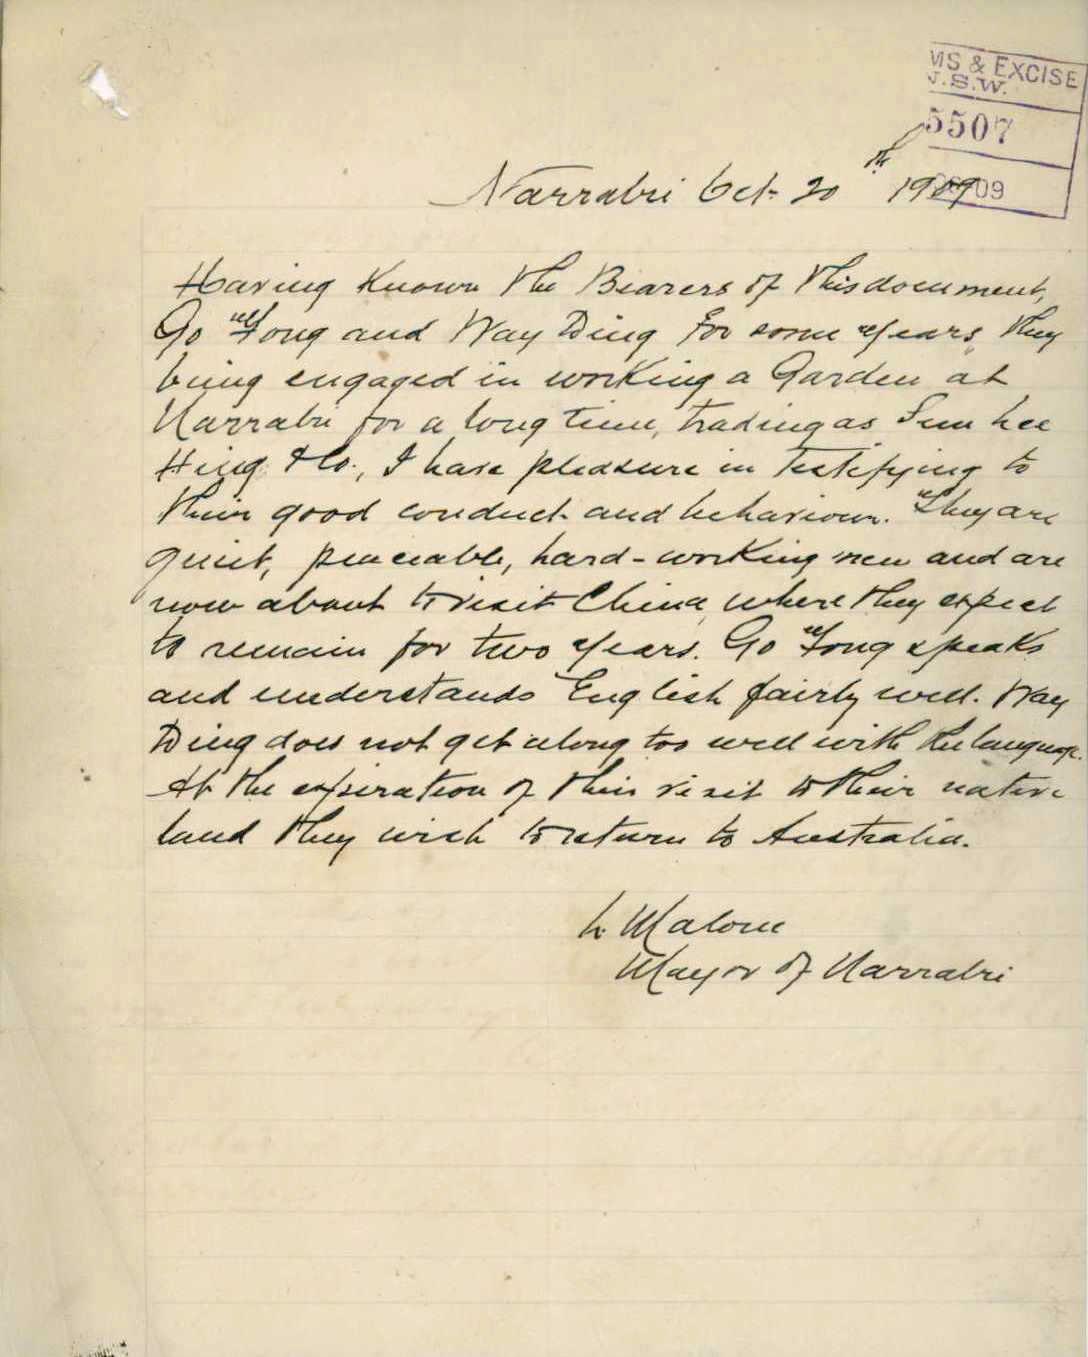 MS & EXCISE
N.S.W.
5507
09
Narrabri Oct. 20th 1909
Having known the Bearers of this document,
Go Yong and Way Ding for some years, they
being engaged in working a Garden at
Narrabri for a long time, trading as Sun Lee
Hing & Co., I have pleasure in testifying to
their good conduct and behaviour. They are
quiet, peaceable, hard-working men and are
now about to visit China, where they expect
to remain for two years. Go Yong speaks
and understands English fairly well. Way
Ding does not get along too well with the language.
At the expiration of their visit to their native
land they wish to return to Australia.
L. Malone
Mayor of Narrabri